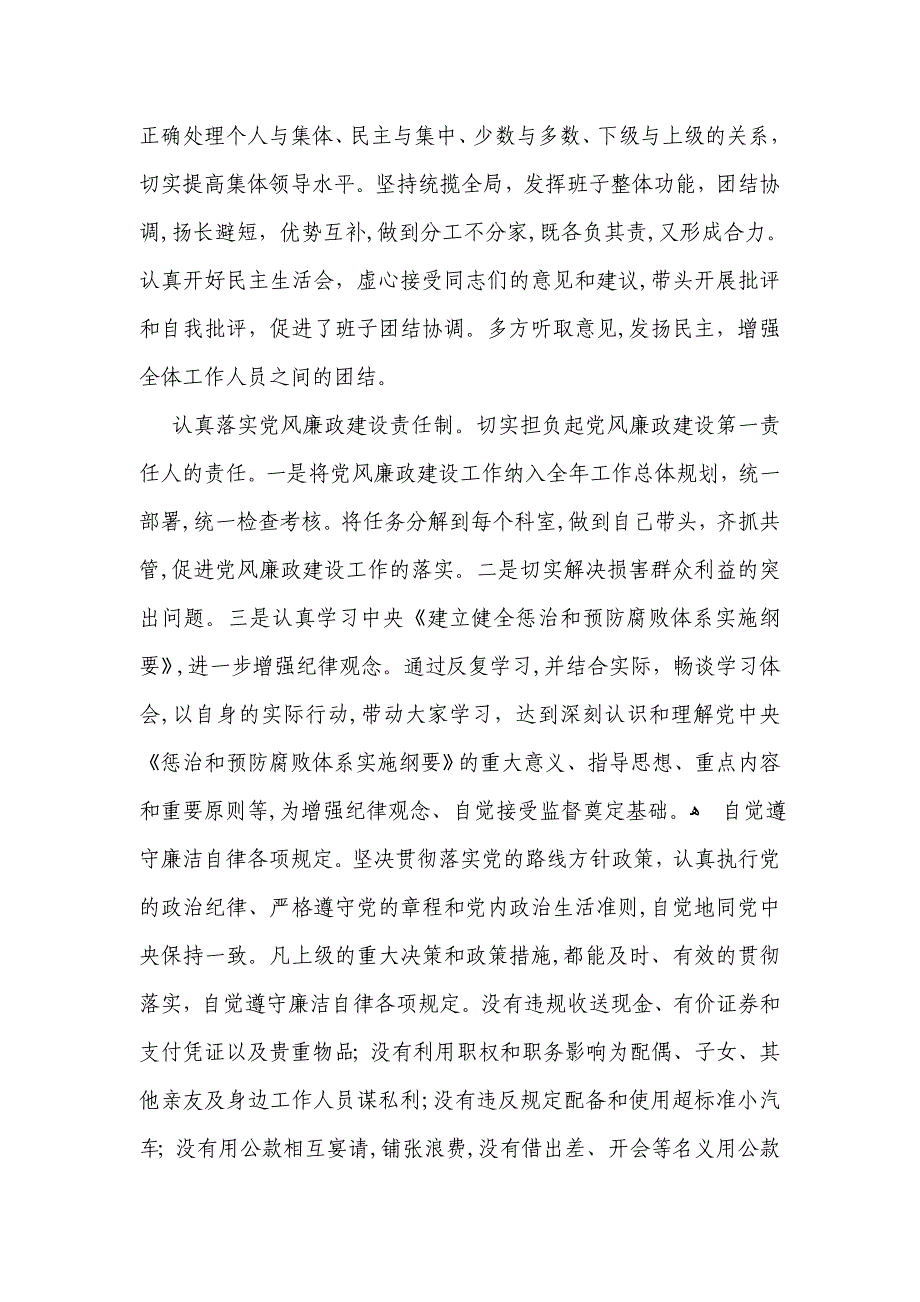 正确处理个人与集体、民主与集中、少数与多数、下级与上级的关系，
切实提高集体领导水平。坚持统揽全局，发挥班子整体功能，团结协
调,扬长避短，优势互补,做到分工不分家,既各负其责,又形成合力。
认真开好民主生活会，虚心接受同志们的意见和建议,带头开展批评
和自我批评，促进了班子团结协调。多方听取意见,发扬民主，增强
全体工作人员之间的团结。
认真落实党风廉政建设责任制。切实担负起党风廉政建设第一责
任人的责任。一是将党风廉政建设工作纳入全年工作总体规划，统一
部署,统一检查考核。将任务分解到每个科室,做到自己带头，齐抓共
管,促进党风廉政建设工作的落实。二是切实解决损害群众利益的突
出问题。三是认真学习中央《建立健全惩治和预防腐败体系实施纲
要》,进一步增强纪律观念。通过反复学习,并结合实际，畅谈学习体
会,以自身的实际行动,带动大家学习，达到深刻认识和理解党中央
《惩治和预防腐败体系实施纲要》的重大意义、指导思想、重点内容
和重要原则等,为增强纪律观念、自觉接受监督奠定基础。ﻫ 自觉遵
守廉洁自律各项规定。坚决贯彻落实党的路线方针政策，认真执行党
的政治纪律、严格遵守党的章程和党内政治生活准则,自觉地同党中
央保持一致。凡上级的重大决策和政策措施,都能及时、有效的贯彻
落实，自觉遵守廉洁自律各项规定。没有违规收送现金、有价证券和
支付凭证以及贵重物品;没有利用职权和职务影响为配偶、子女、其
他亲友及身边工作人员谋私利;没有违反规定配备和使用超标准小汽
车;没有用公款相互宴请,铺张浪费,没有借出差、开会等名义用公款